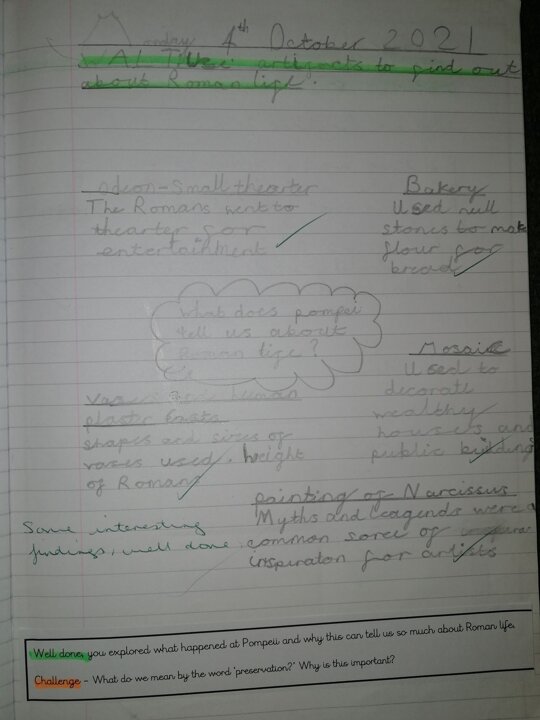 Monday 4th October 2021
WALT: Use artifacts to find out
about Roman life.
odeon-Small thearter
The Romans went to
thearter for
entertainment
Bakery
Used mill
stones to make
flour for
bread
What does pompeii
tell us about
Roman life?
Mosaic
Used to
decorate
wealthy
houses and
public building
human
plaster casts
shapes and sizes of
vases used. height
of Romans
painting of Narcissus
Myths and leagends were a
common sorce of
inspiraton for artists
Some interesting
findings, well done.
Well done, you explored what happened at Pompeii and why this can tell us so much about Roman life.
Challenge - What do we mean by the word 'preservation?' Why is this important?